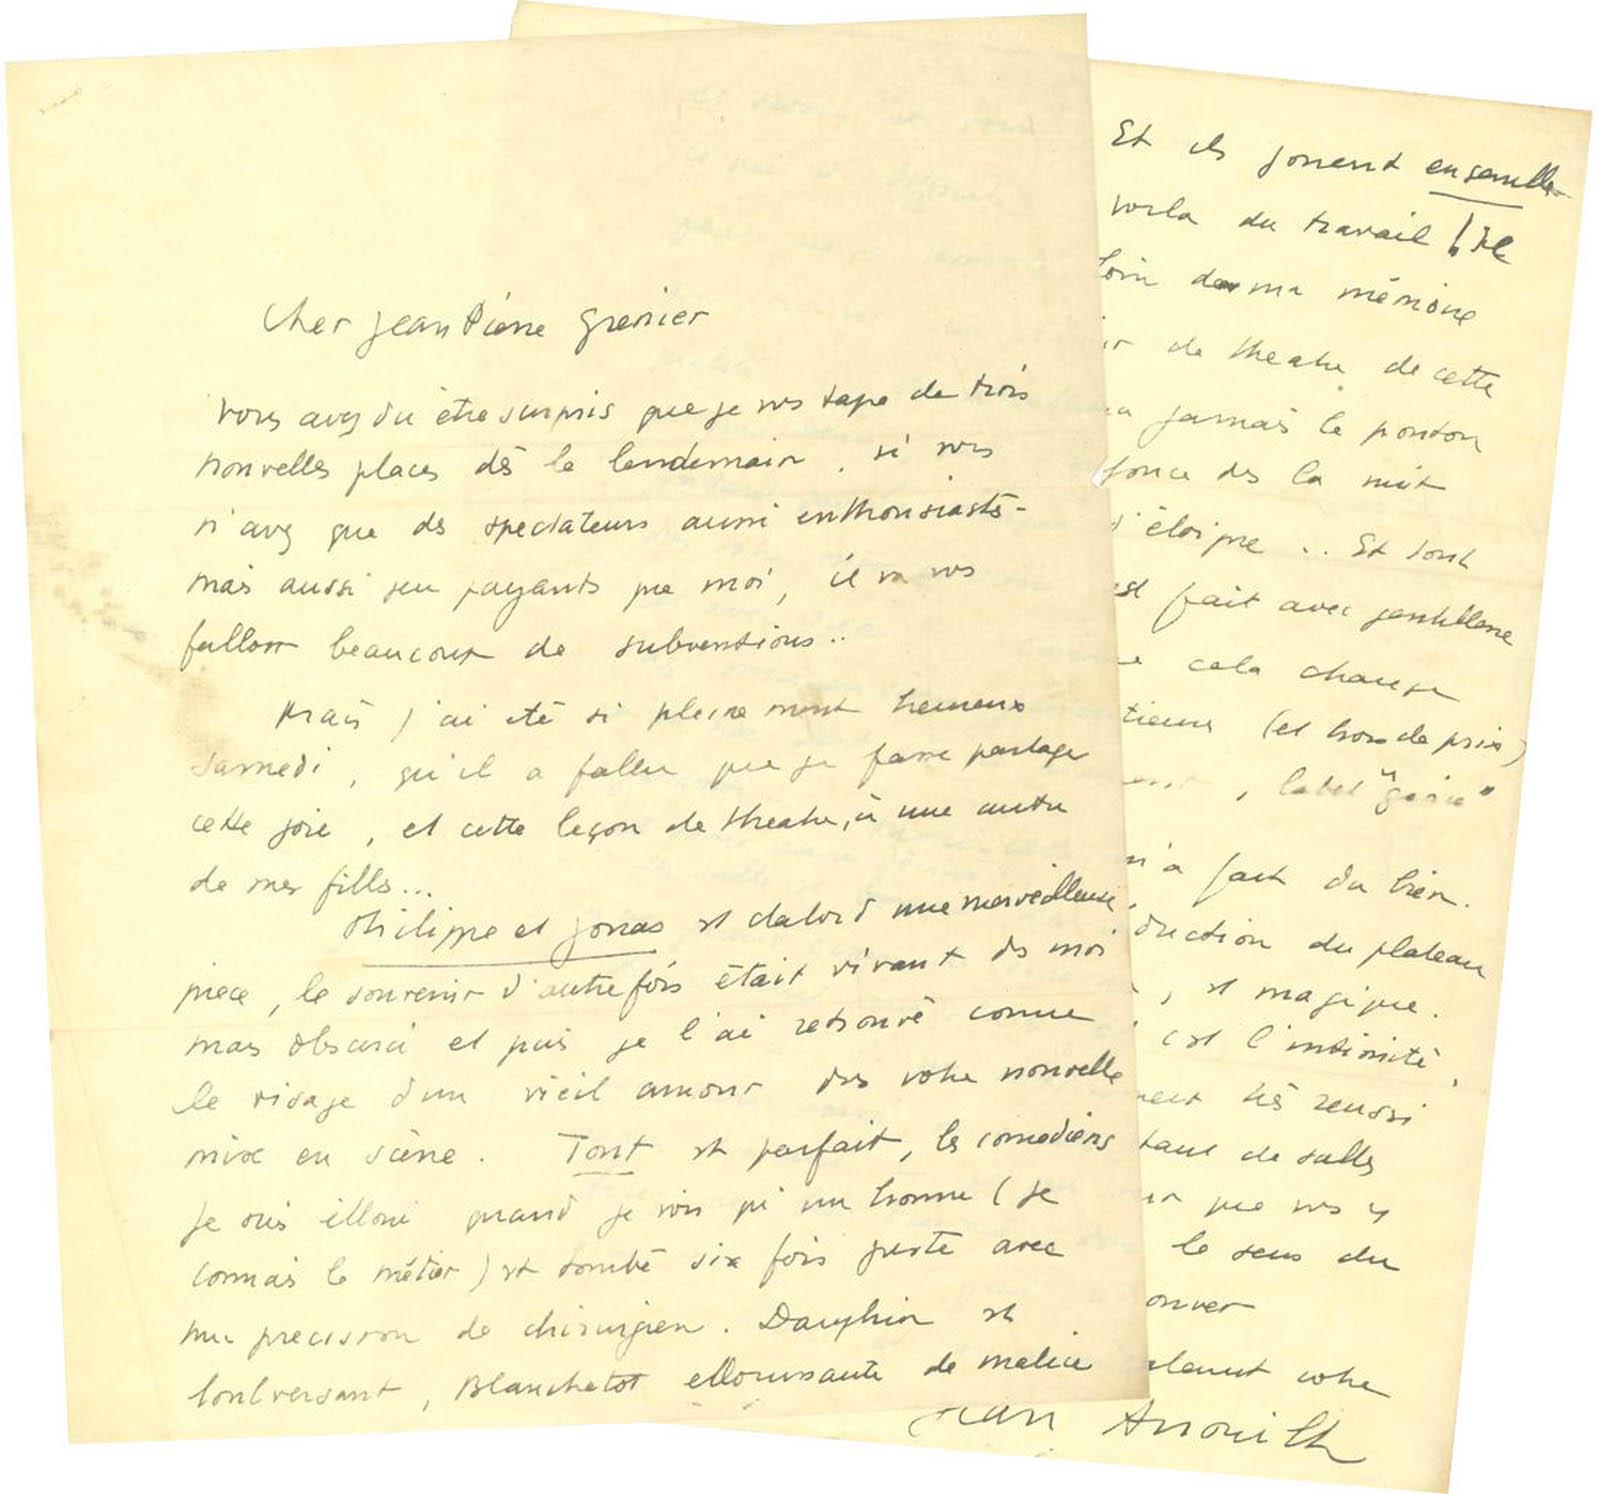 Cher Jean Pierre Grenier
Vous avez du être surpris que je vos tape de trois
nouvelles places dès le lendemain. si vos
n'avez que des spectateurs aussi enthousiastes -
mais aussi peu payants que moi, il va vos
falloir beaucoup de subventions..
Mais j'ai été si pleinement heureux
samedi, qu'il a fallu que je fasse partager
cette joie, et cette leçon de theatre, à une autre
de mes filles...
Philippe et Jonas est dabord une merveilleuse
piece, le souvenir d'autrefois était vivant ds moi
mais obscurci et puis je l'ai retrouvé comme
le visage d'un vieil amour ds votre nouvelle
mise en scène. Tout est parfait, les comediens
je suis ebloui quand je vois qu'un homme (je
connais le métier) est tombé six fois juste avec
une precision de chirurgien. Dauphin est
bouleversant, Blanchetot eblouissante de malice
Et ils jouent ensemble
voila du travail ! Je
loin de ma mémoire
de theatre de cette
jamais le ponton
fonce ds la nuit
s'éloigne .. Et tout
est fait avec gentillesse
cela change
(et hors de prix)
, label "génie"
m'a fait du bien.
du plateau
, est magique.
c'est l'intimité,
très reussi
tant de salles
que vos y
le sens du
votre
Jean Anouilh